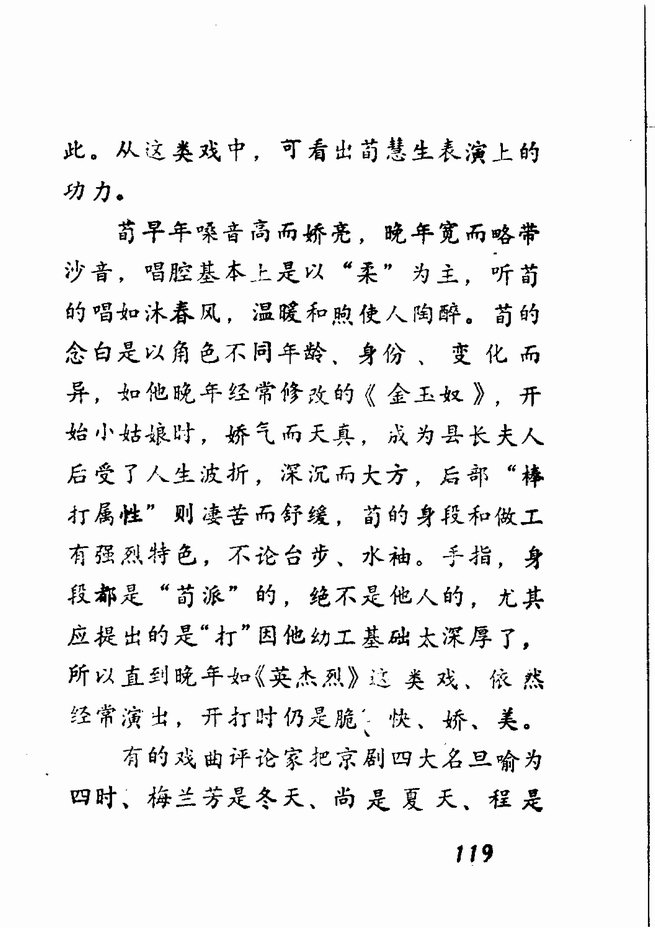 此。从这类戏中，可看出荀慧生表演上的
功力。
荀早年嗓音高而娇亮，晚年宽而略带
沙音，唱腔基本上是以“柔”为主，听荀
的唱如沐春风，温暖和煦使人陶醉。荀的
念白是以角色不同年龄、身份、变化而
异，如他晚年经常修改的《金玉奴》，开
始小姑娘时，娇气而天真，成为县长夫人
后受了人生波折，深沉而大方，后部“棒
打属性”则凄苦而舒缓，荀的身段和做工
有强烈特色，不论台步、水袖。手指，身
段都是“荀派”的，绝不是他人的，尤其
应提出的是“打”因他幼工基础太深厚了，
所以直到晚年如《英杰烈》这类戏、依然
经常演出，开打时仍是脆、快、娇、美。
有的戏曲评论家把京剧四大名旦喻为
四时、梅兰芳是冬天、尚是夏天、程是
119